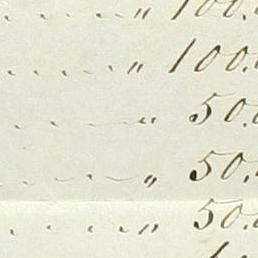 " 100.
" 100.0
" 50.0
" 50.
" 50.